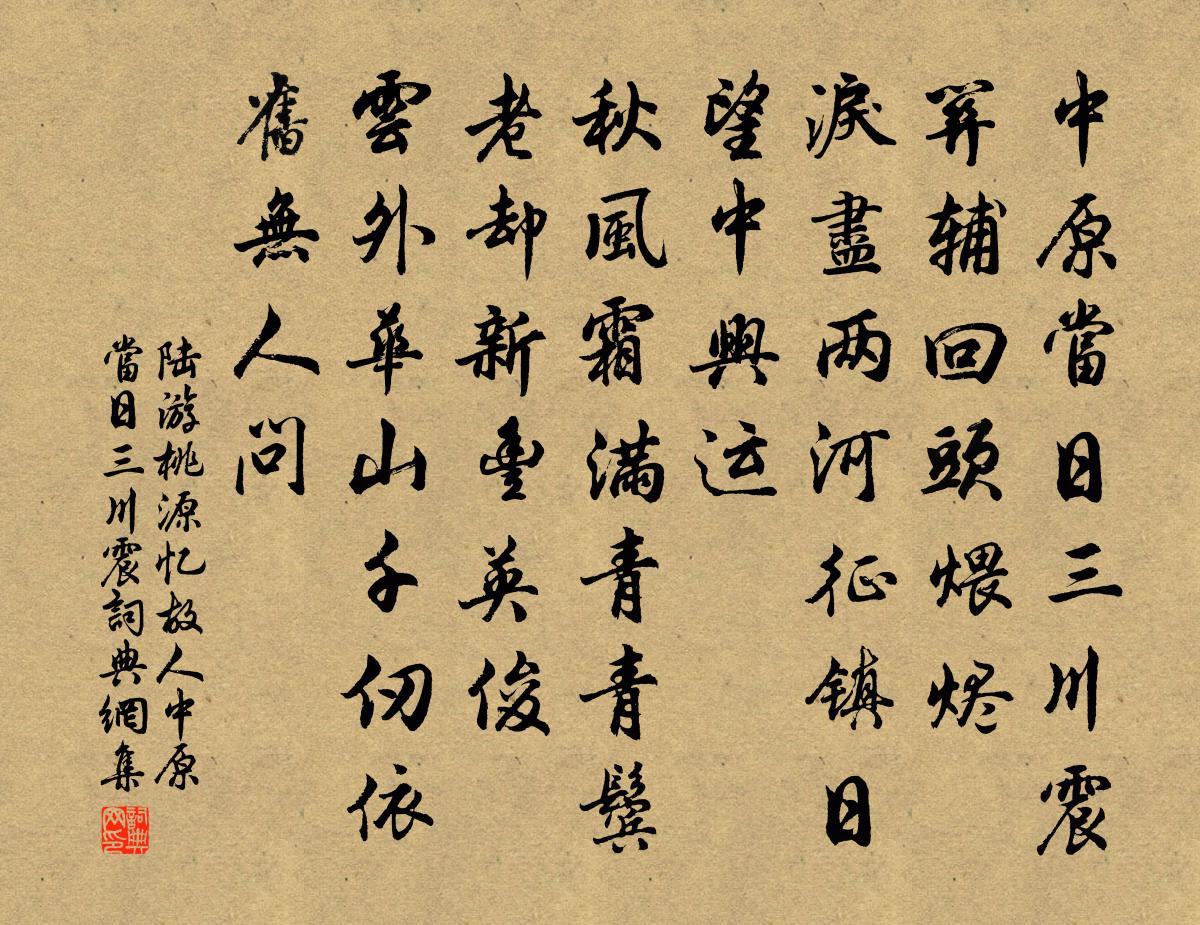 中原當日三川震
关辅回頭煨烬
淚盡两河征镇日
望中興运
秋風霜满青青鬓
老却新豐英俊
雲外華山千仞依
舊無人问
陆游桃源忆故人中原
當日三川震詞典網集
詞典
网印